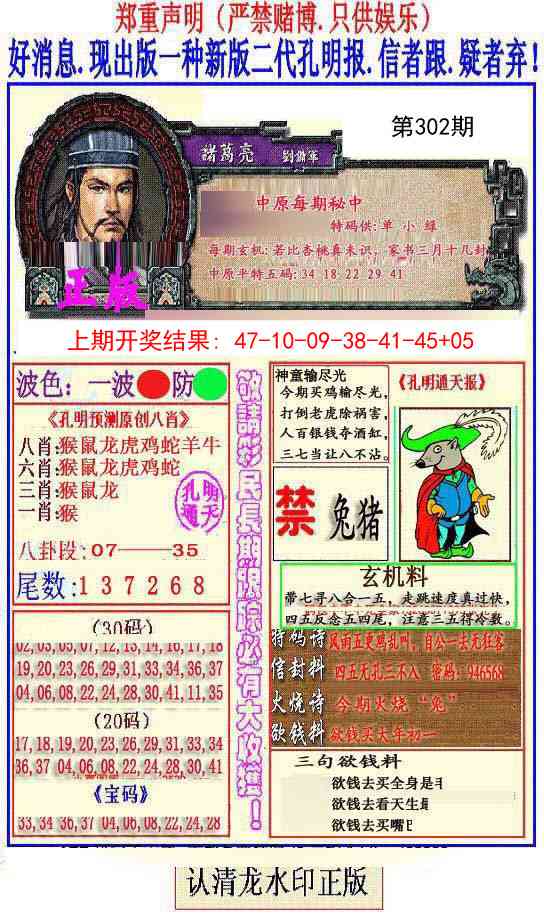 郑重声明（严禁赌博.只供娱乐）
好消息.现出版一种新版二代孔明报.信者跟.疑者弃!
第302期
諸葛亮 劉備軍
中原每期秘中
特码供:单 小 绿
每期玄机:若比杏桃真未识，家书三月十几封
中原平特五码:34 18 22 29 41
正版
上期开奖结果: 47-10-09-38-41-45+05
波色: 一波 防
《孔明预测原创八肖》
八肖:猴鼠龙虎鸡蛇羊牛
六肖:猴鼠龙虎鸡蛇
三肖:猴鼠龙
一肖:猴
孔明
通天
八卦段:07——35
尾数:137268
(30码)
02,03,05,07,12,13,14,16,17,18
19,20,23,26,29,31,33,34,36,37
04,06,08,22,24,28,30,41,11,35
(20码)
17,18,19,20,23,26,29,31,33,34
36,37 04,06,08,22,24,28,30,41
《宝码》
33,34 36,37 04,06,08,22,24,28
敬請彩民長期跟踪必有大收獲！
神童输尽光
今期买鸡输尽光，
打倒老虎除祸害，
人百银钱夺酒缸，
三七当让八不沾。
《孔明通天报》
禁 兔猪
玄机料
带七寻八合一五，走跳速度真过快，
四五反念五四尾，注意三五得冷数。
特码诗 风雨五更鸡乱叫，自公一去无狂客
信封料 四五无孔三不入 密码：946568
火烧诗 今期火烧“兔”
欲钱料 欲钱买大年初一
三句欲钱料
欲钱去买全身是
欲钱去看天生
欲钱去买嘴
认清龙水印正版